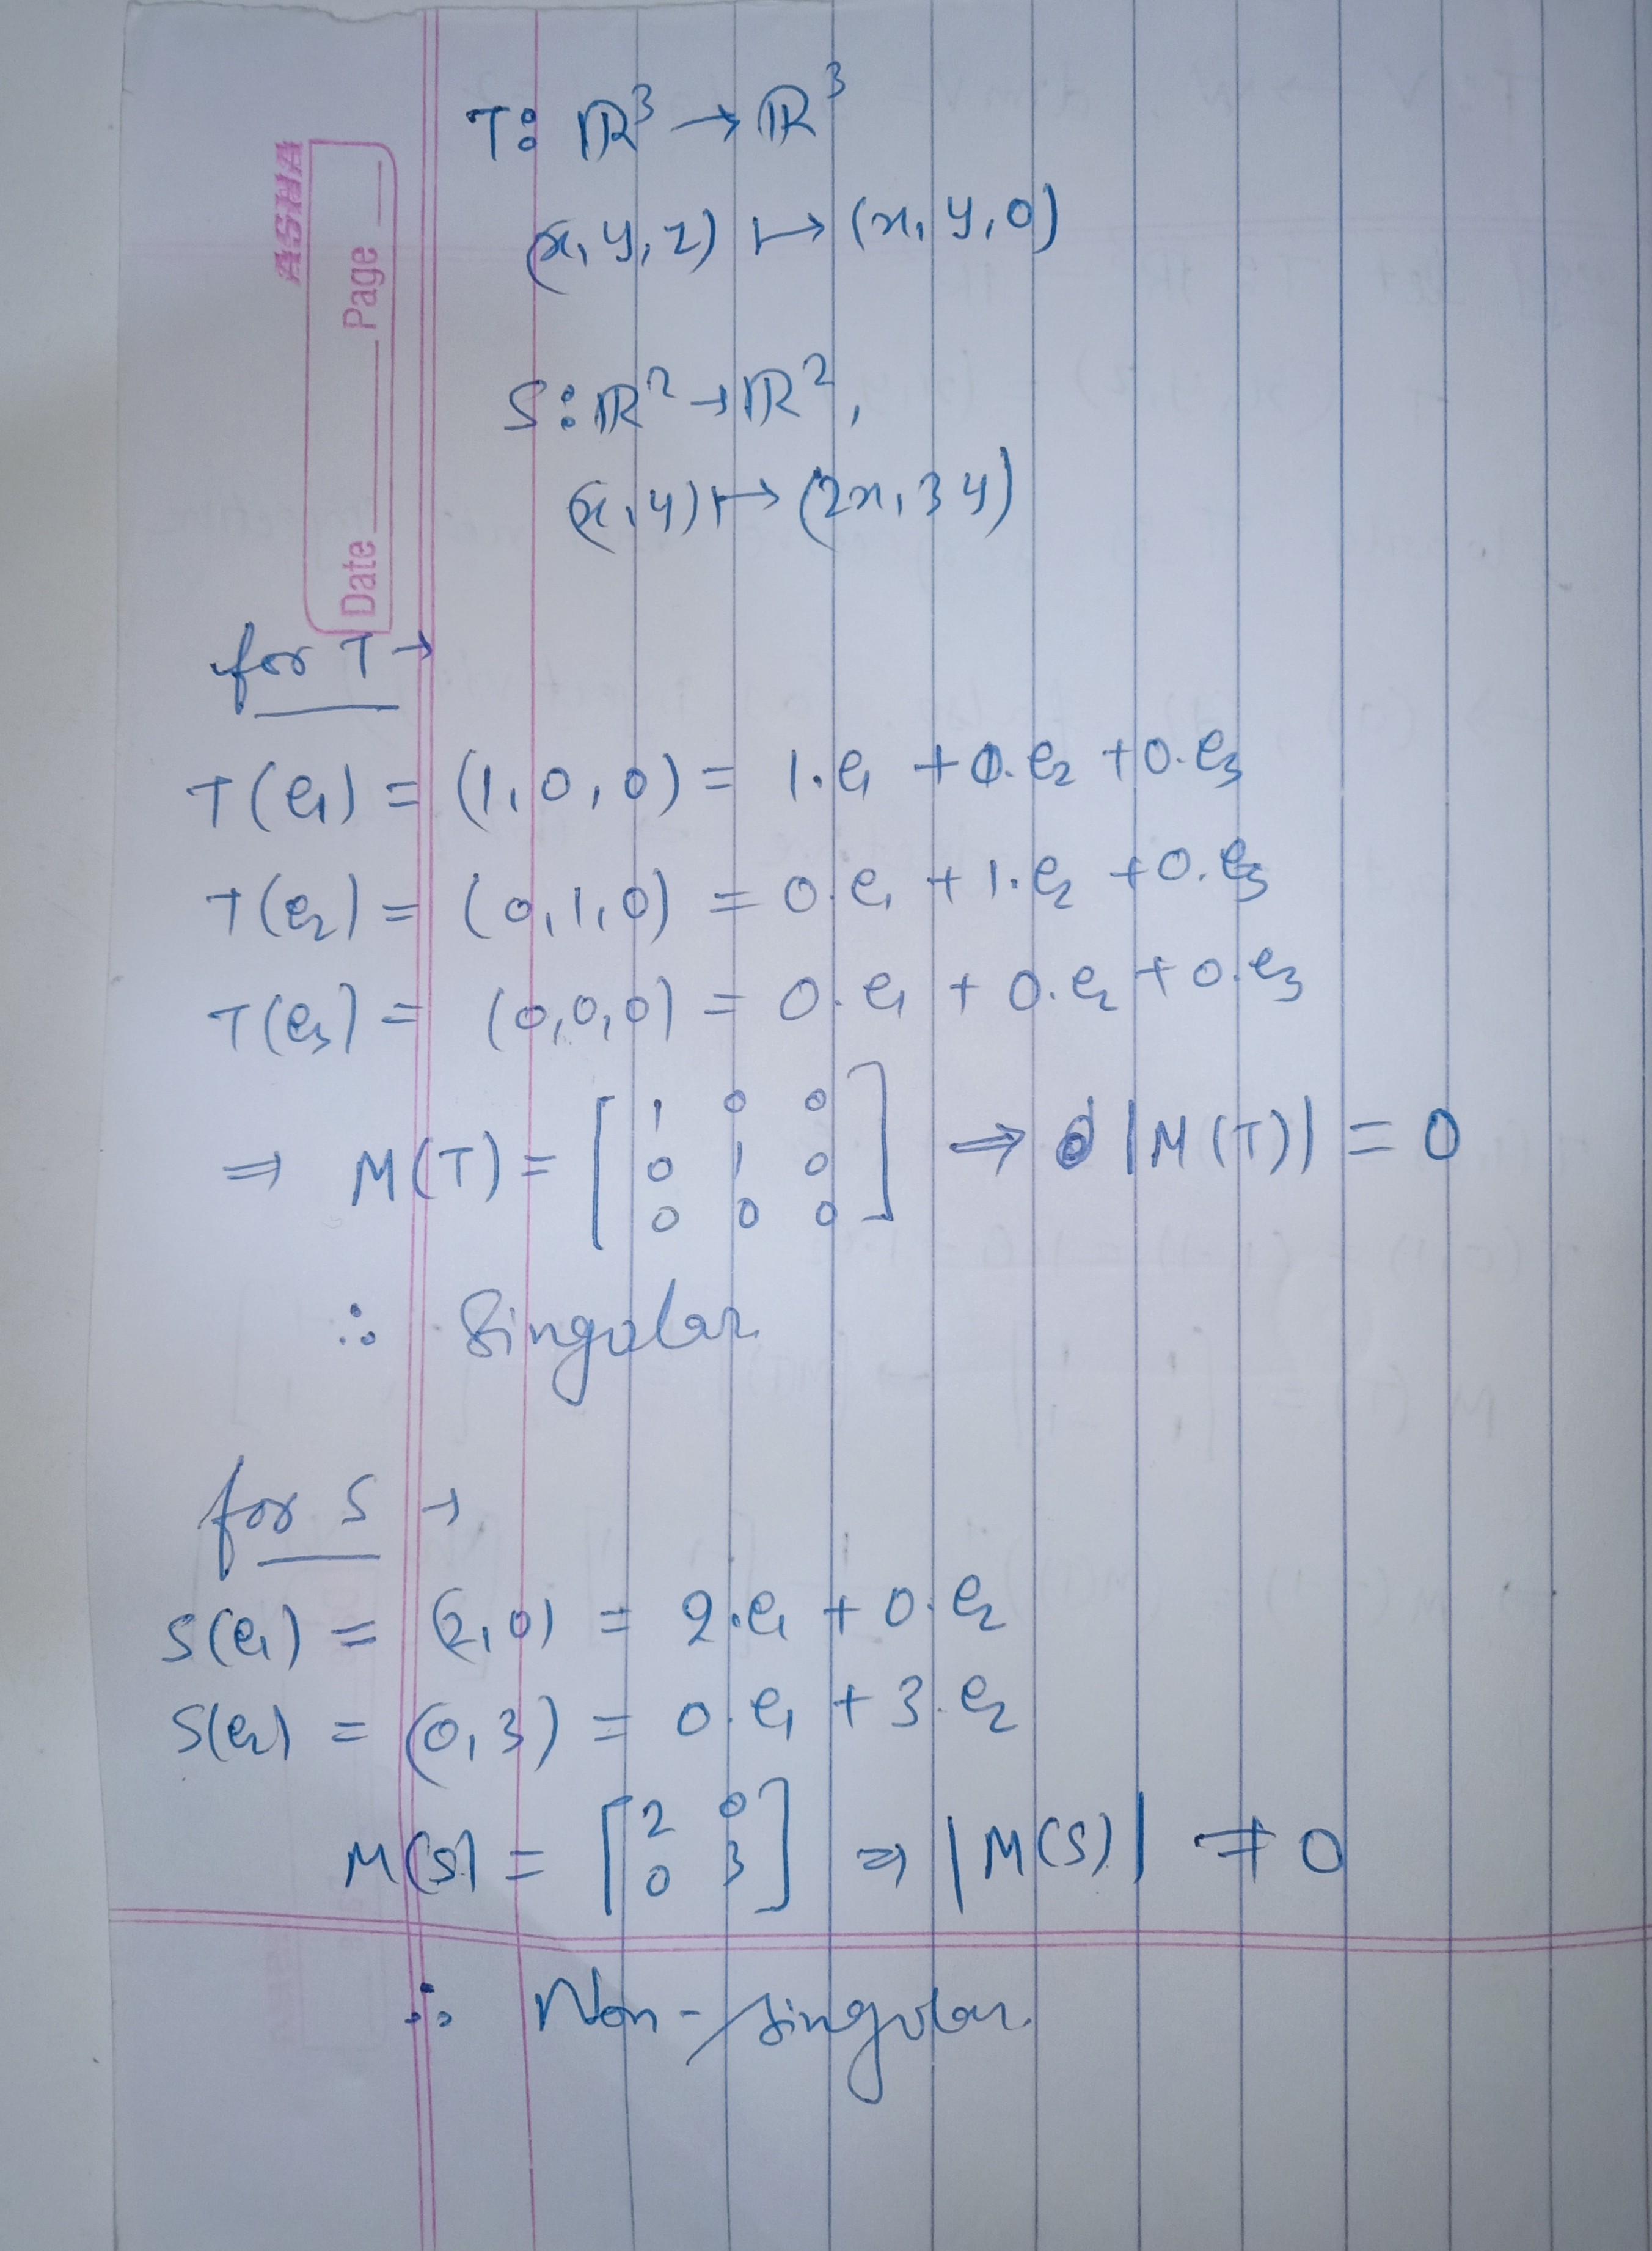 T: ℝ³ → ℝ³
(x, y, z) ↦ (x, y, 0)
S: ℝ² → ℝ²,
(x, y) ↦ (2x, 3y)
ASHA
Date Page
for T →
T(e₁) = (1, 0, 0) = 1.e₁ + 0.e₂ + 0.e₃
T(e₂) = (0, 1, 0) = 0.e₁ + 1.e₂ + 0.e₃
T(e₃) = (0, 0, 0) = 0.e₁ + 0.e₂ + 0.e₃
⇒ M(T) = [1 0 0
0 1 0
0 0 0] ⇒ |M(T)| = 0
∴ Singular
for S →
S(e₁) = (2, 0) = 2.e₁ + 0.e₂
S(e₂) = (0, 3) = 0.e₁ + 3.e₂
M(S) = [2 0
0 3] ⇒ |M(S)| ≠ 0
∴ Non-singular.